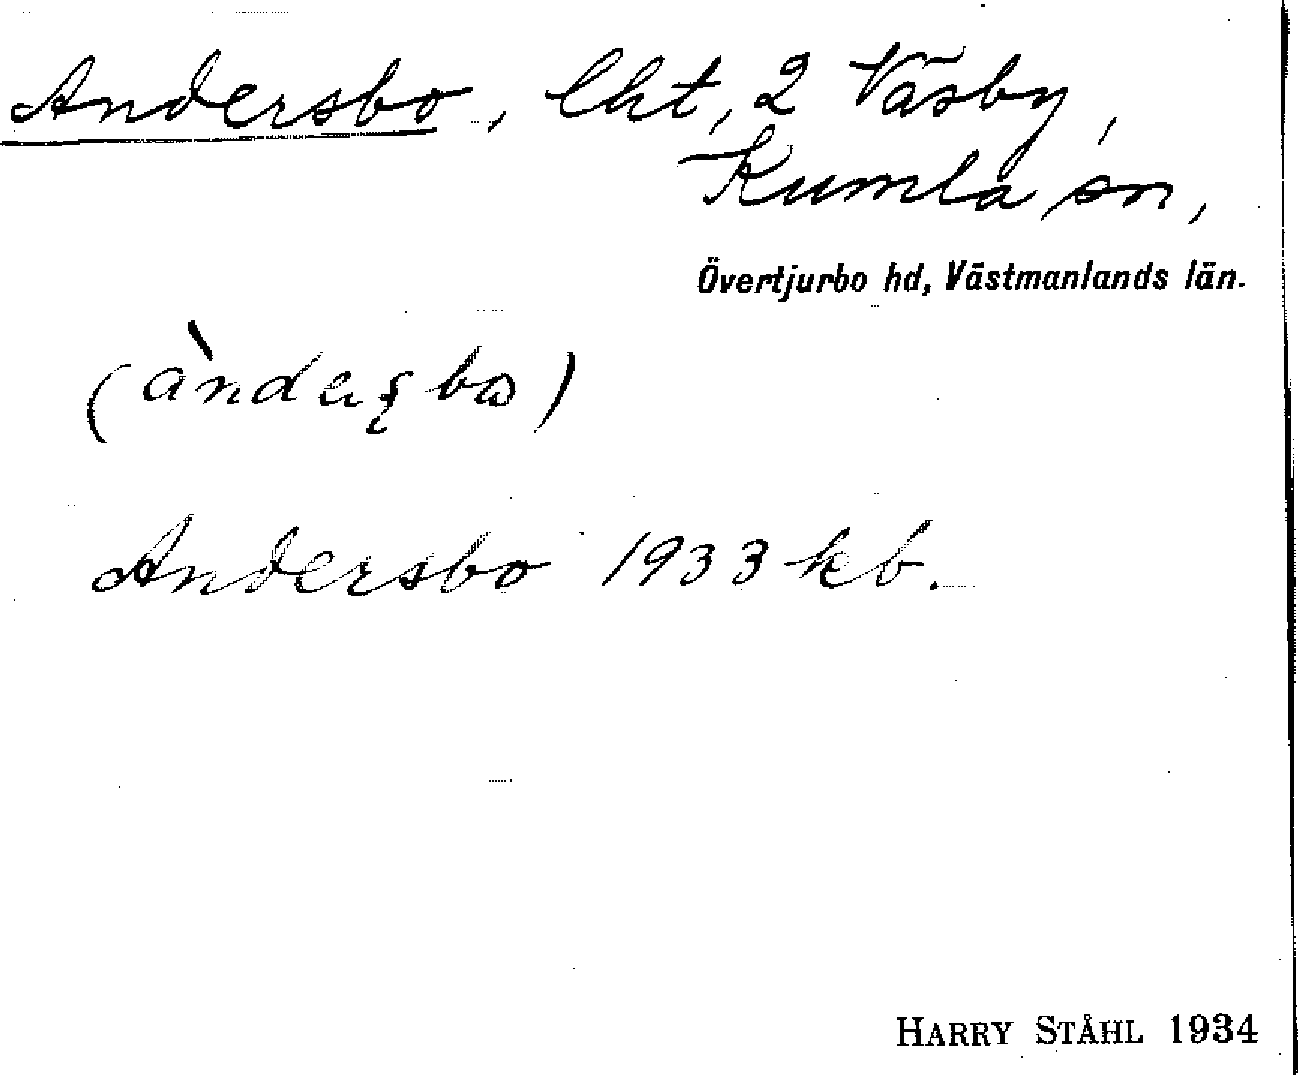 Andersbo, lht, 2 Väsby,
Kumla sn,
Övertjurbo hd, Västmanlands län.
Andersbo 1933 kb.
HARRY STÅHL 1934